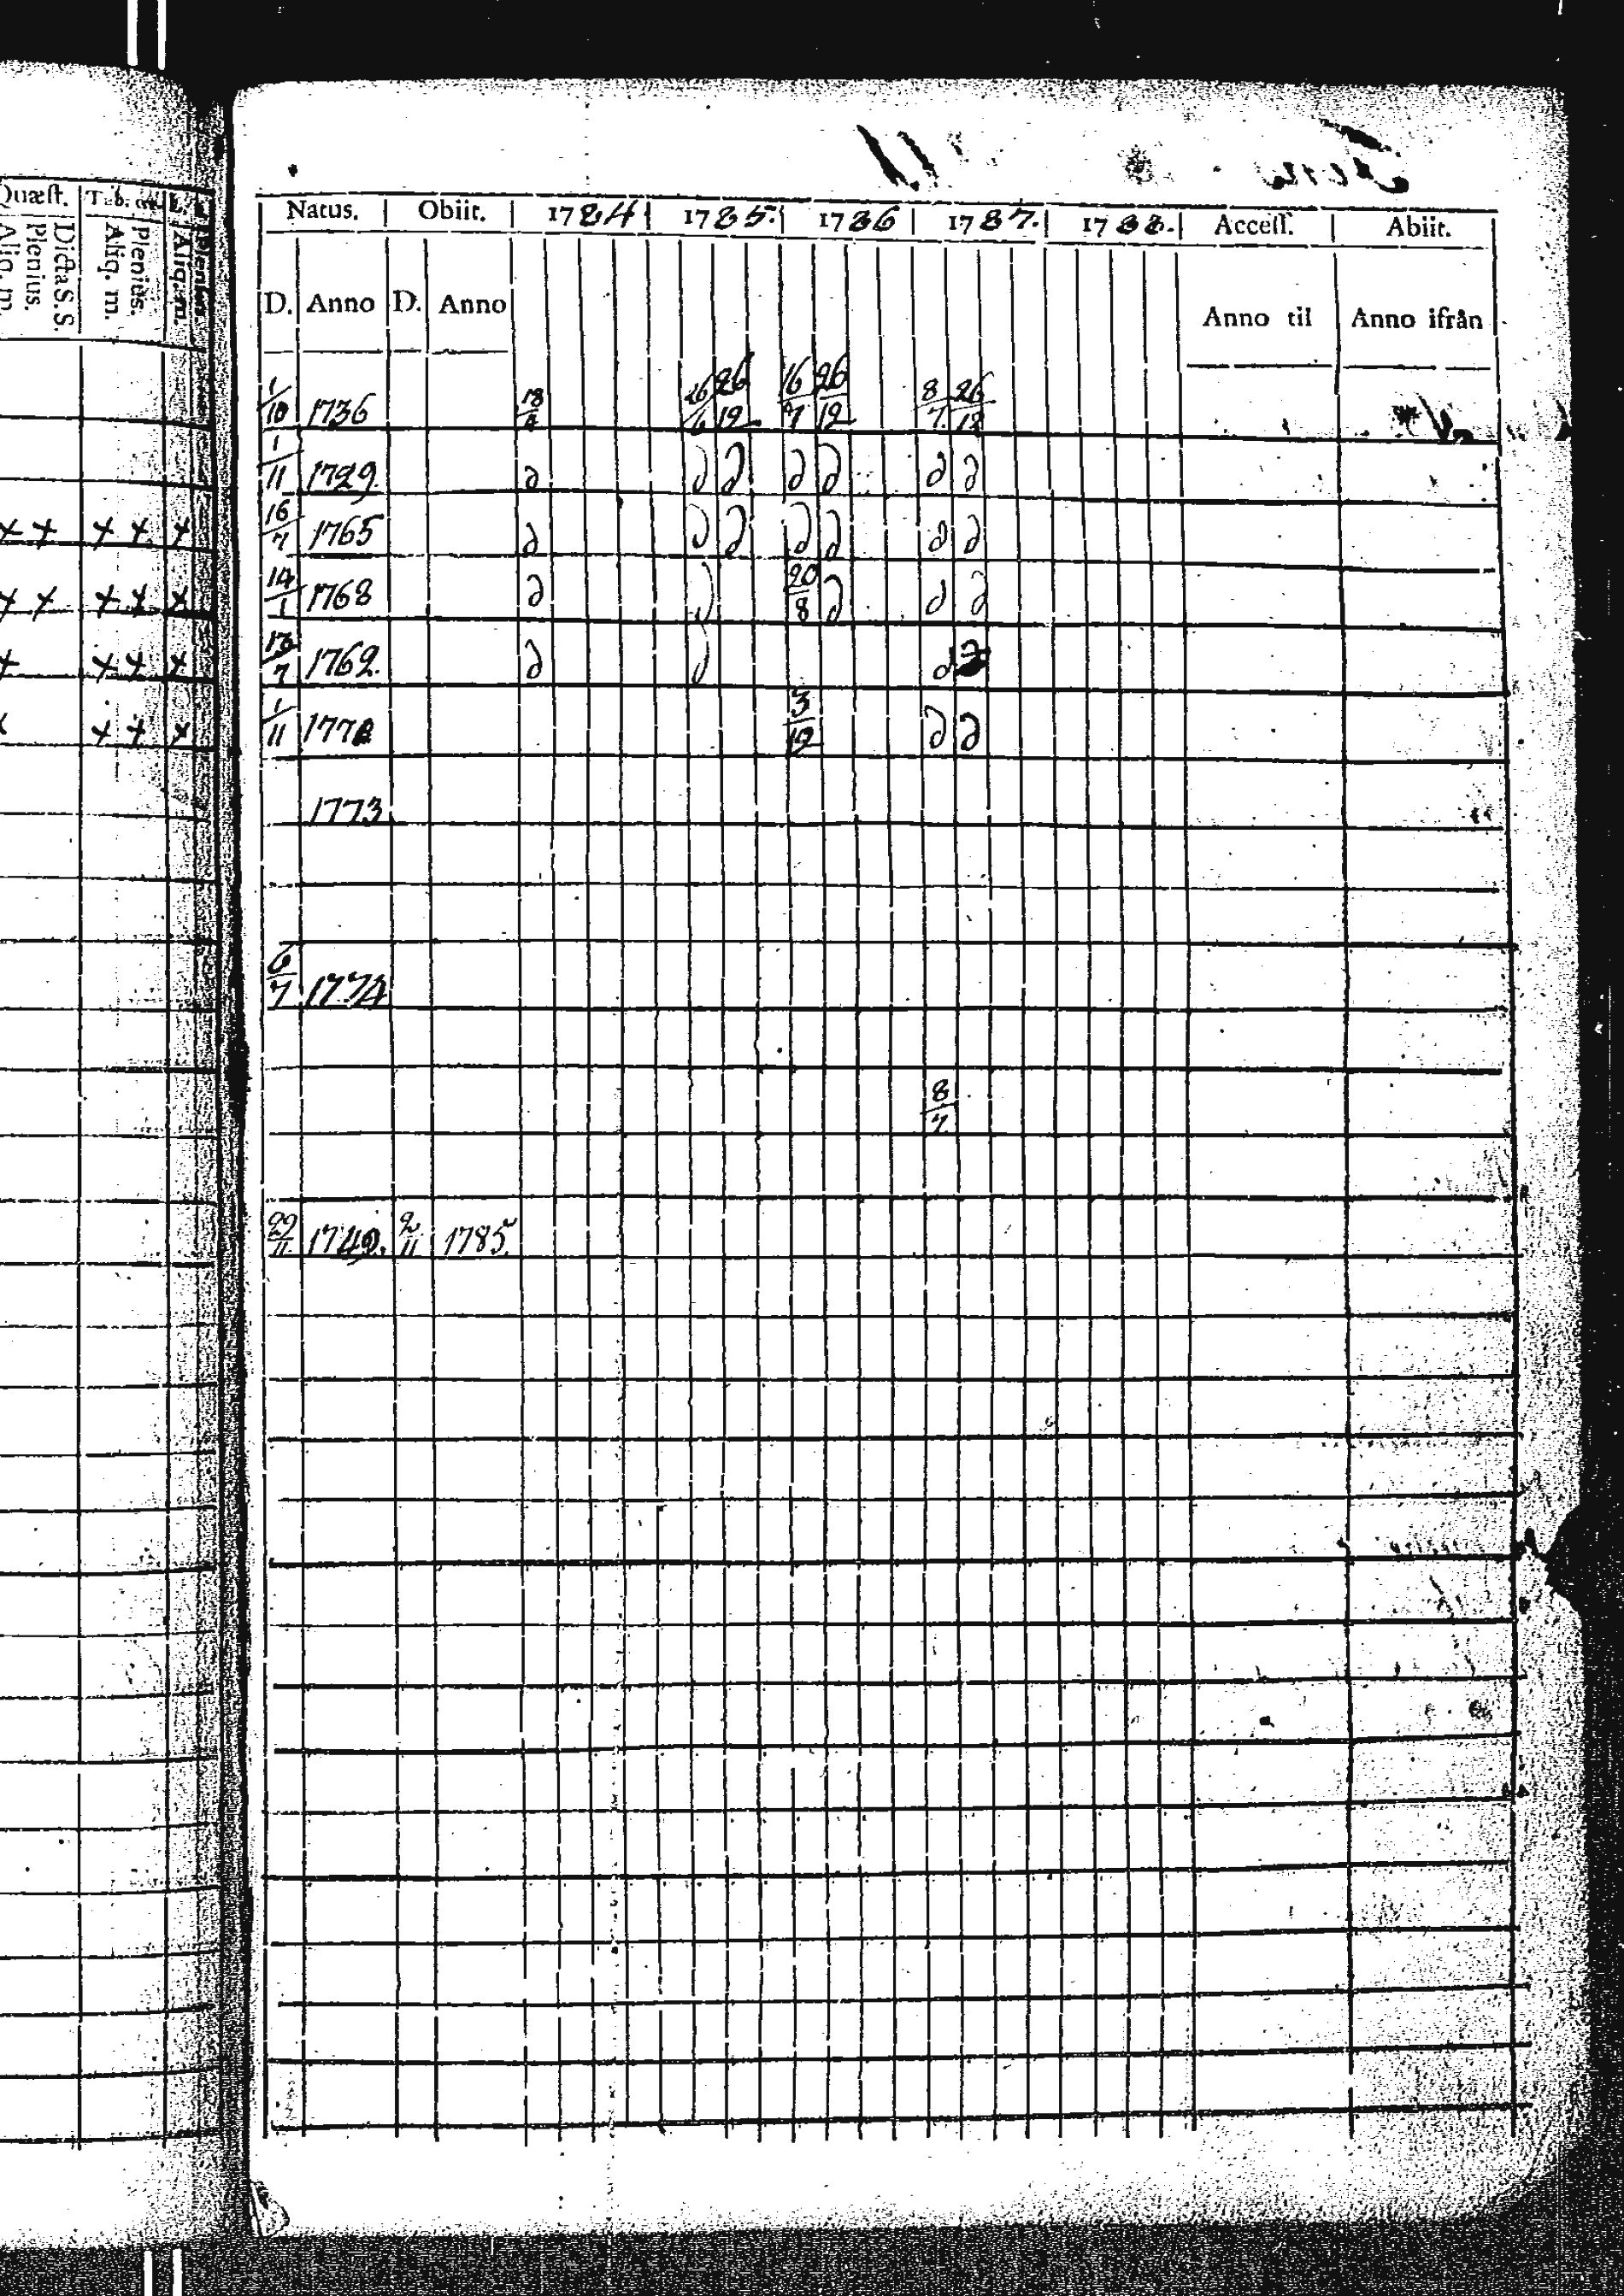 Quæst.
Plenius.
Aliq. m.
Dicta S. S.
Plenius.
Aliq. m.
Plenius.
Aliq. m.
Natus. Obiit. 1784. 1785. 1786 1787. 1788. Access. Abiit.
D. Anno D. Anno Anno til Anno ifrån
1/10 1736 18/4 26/6 26/12 16/7 26/12 8/7 26/12
1/11 1729 ∂ ∂ ∂ ∂ ∂ ∂ ∂
16/7 1765 ∂ ∂ ∂ ∂ ∂ ∂ ∂
x x x x x
14/1 1768 ∂ ∂ 20/8 ∂ ∂ ∂
x x x x x
7 1762. ∂ ∂ ∂
x x x x
1/11 3/12 ∂ ∂
x x x
1773
6/7 1774
8/7
29/11 1749. 2/11 1785.